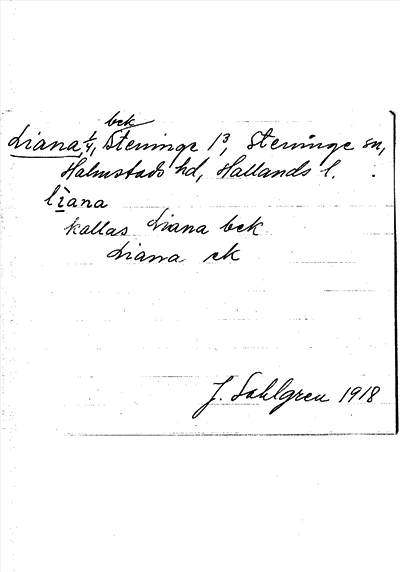 bck
Liana, 1/4, Steninge 1³, Steninge sn,
Halmstads hd, Hallands l.
līana
kallas Liana bck
Liana ck
J. Sahlgren 1918